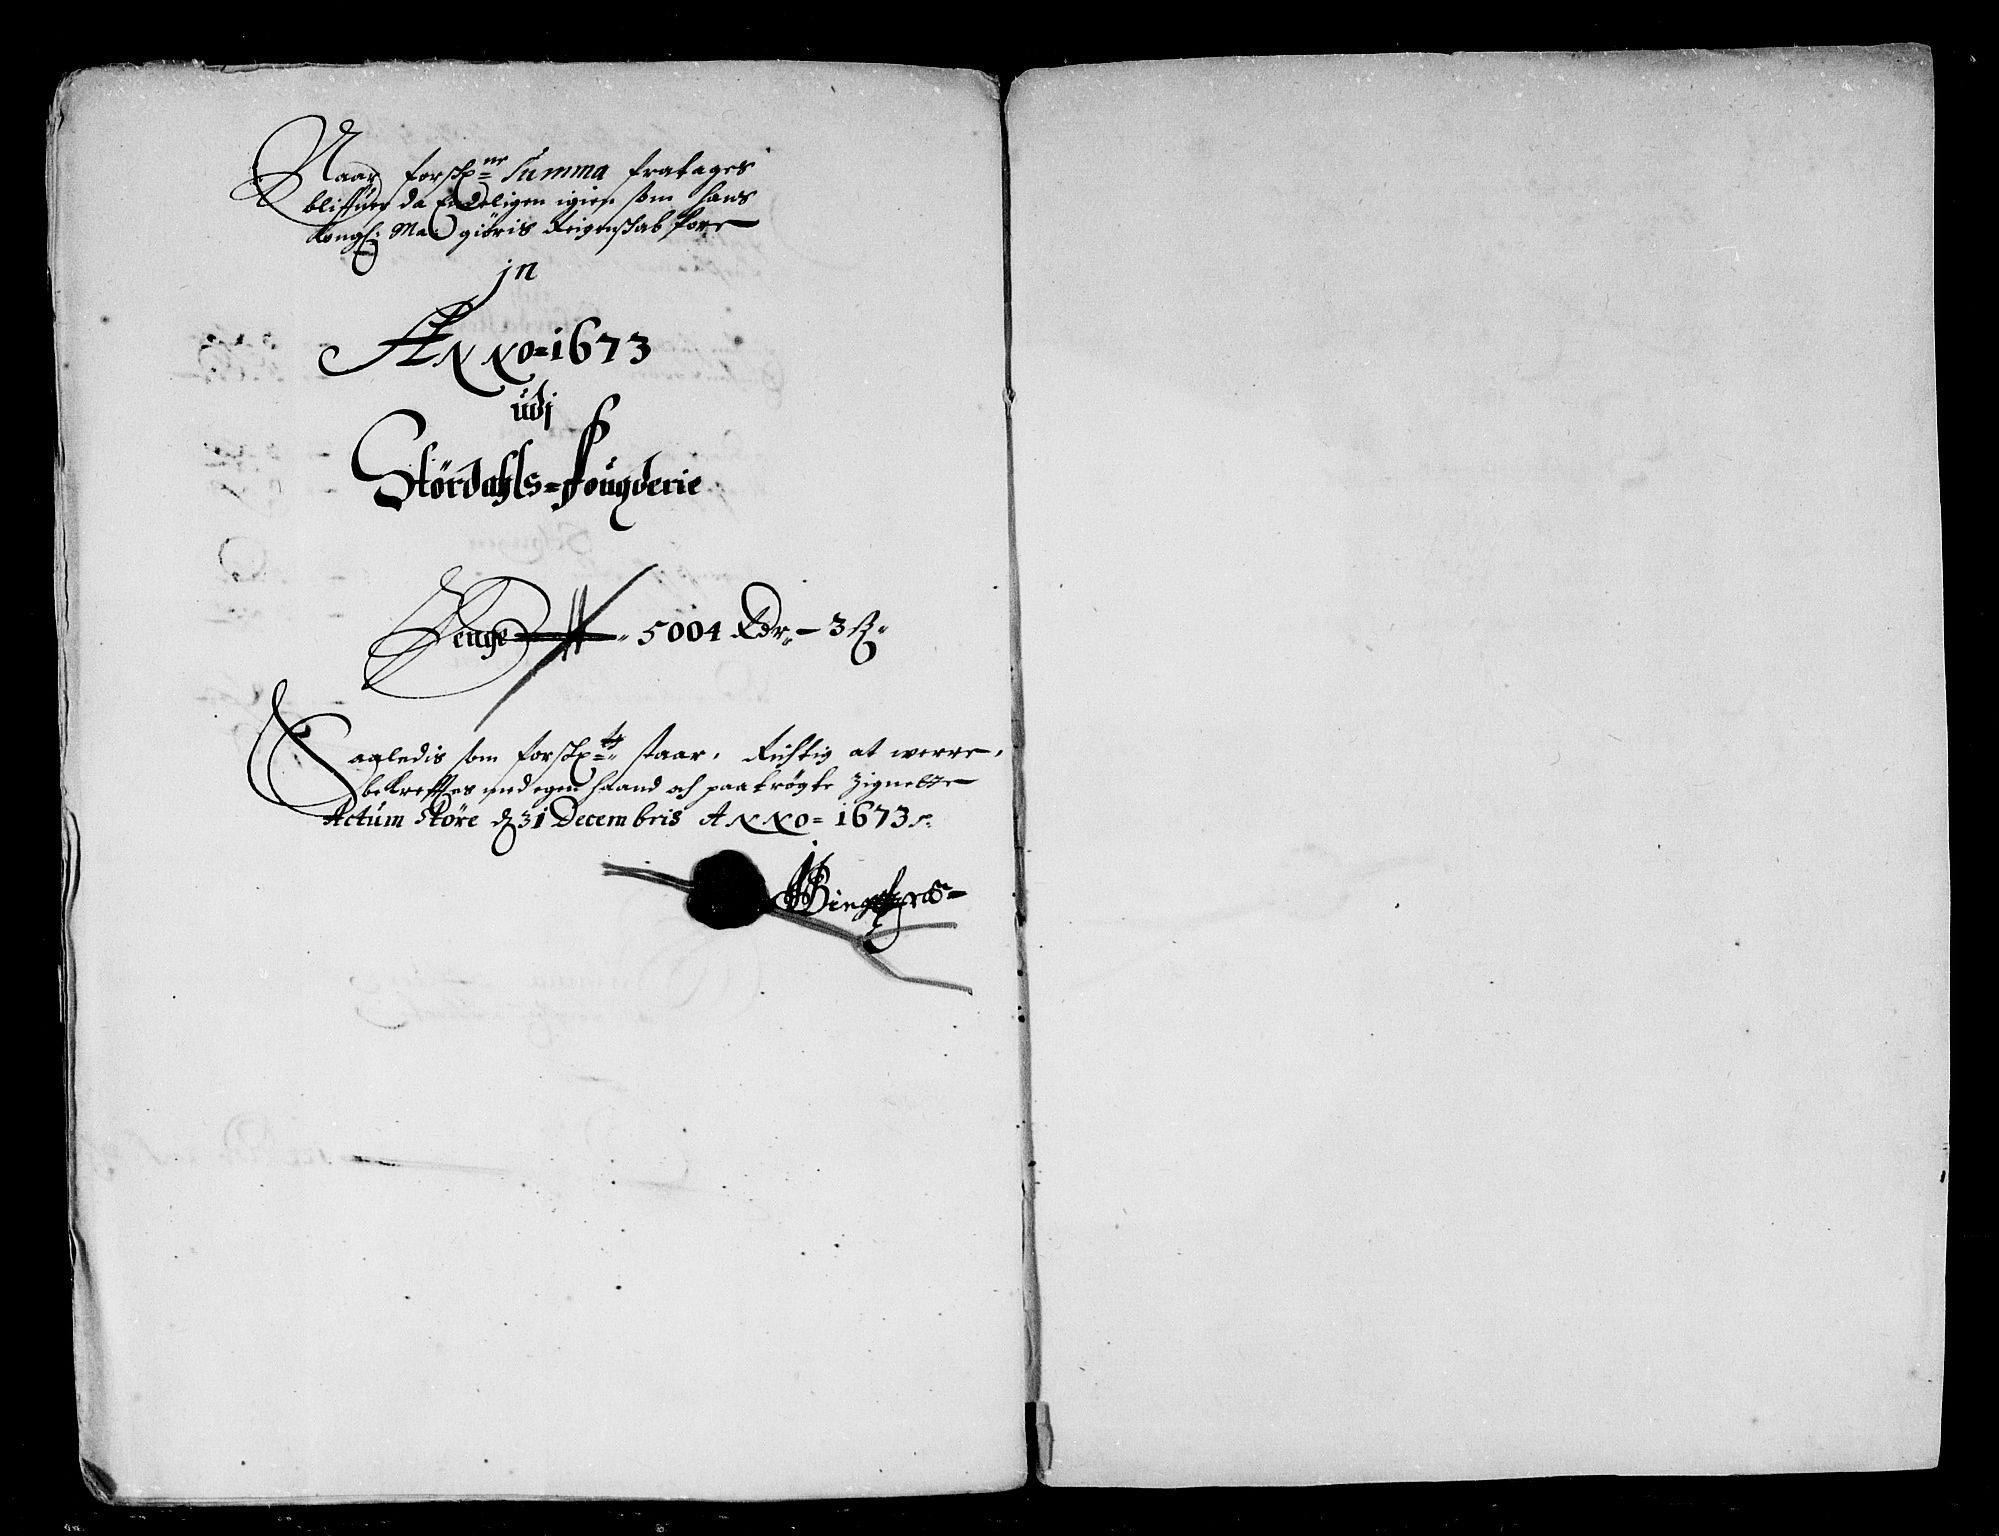 Naar forsch:ne Summa fratages
bliffuer da Endeligen igien som hans
Kongl: Ma: giöris Reigenschab fore
jn
Anno = 1673
udj
Stördahls = Fougderie
Penge 5004 Rdr - 3 ß
Saaledis som forsch:t staar, Richtig at werre,
bekreffter med egen haand och paatrögte Zignette
Actum Störe d 31 Decembris Anno = 1673